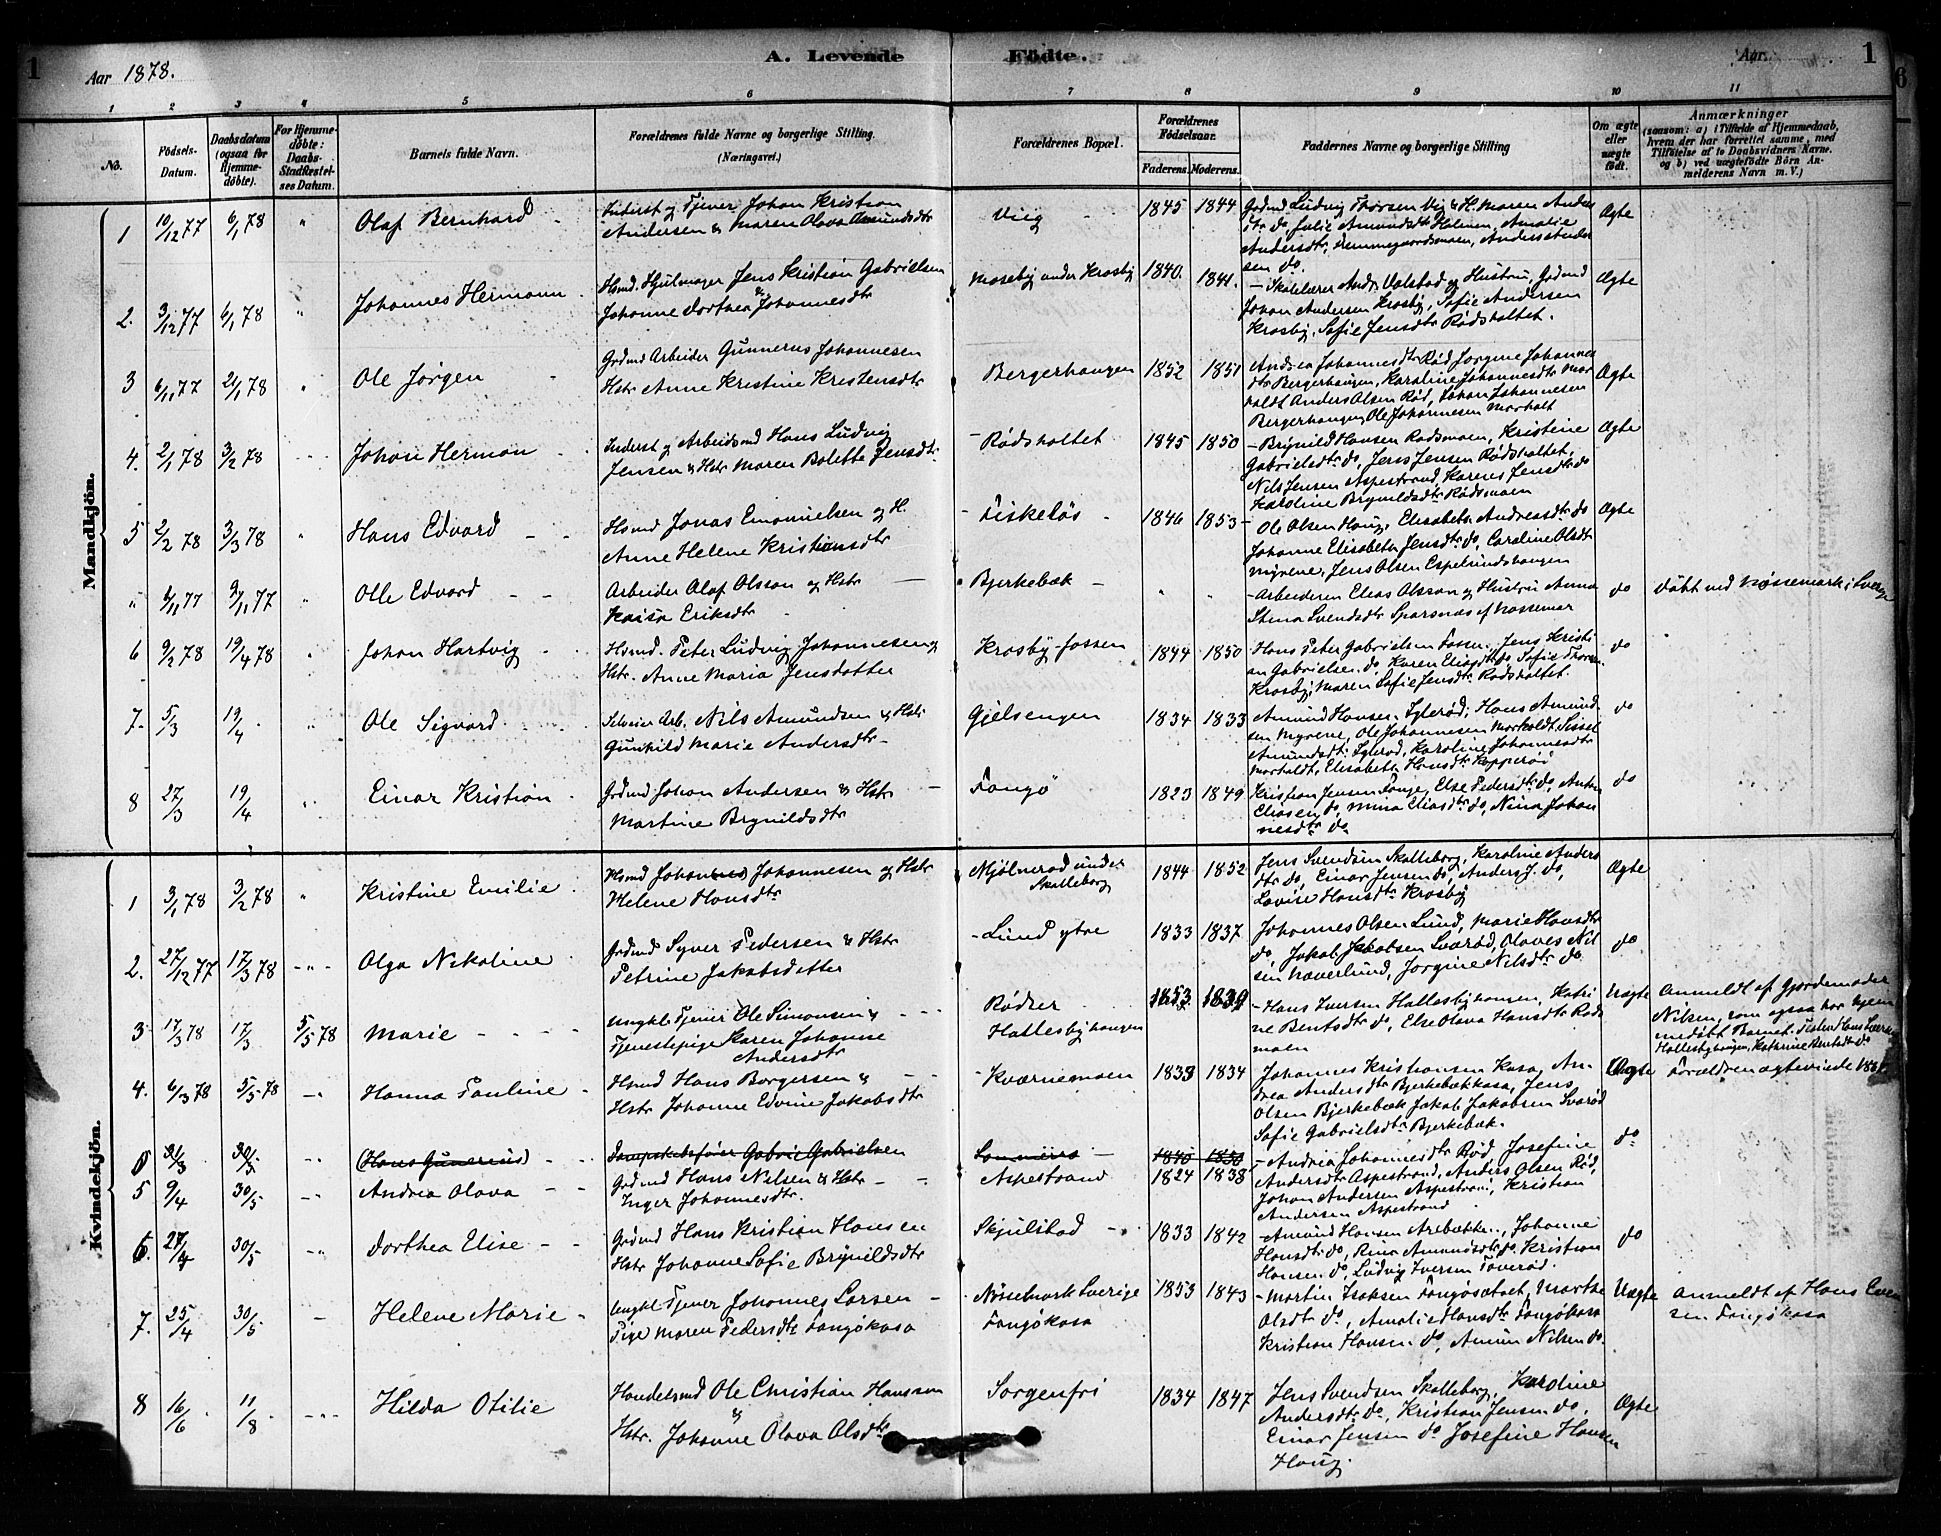 1
Aar 1878.
A. Levende Födte.
Aar
1
6
1 2 3 4 5 6 7 8 9 10 11
No.
Födsels-
Datum.
Daabsdatum
(ogsaa for
Hjemme-
döbte).
For Hjemme-
döbte:
Daabs-
Stadfæstel-
ses Datum.
Barnets fulde Navn.
Forældrenes fulde Navne og borgerlige Stilling.
(Næringsvei.)
Forældrenes Bopæl.
Forældrenes
Födselsaar.
Faderens. Moderens.
Faddernes Navne og borgerlige Stilling
Om ægte
eller
uægte
født.
Anmærkninger
(saasom: a) i Tilfælde af Hjemmedaab,
hvem der har forrettet samme, med
Tilføielse af to Daabsvidners Navne.
og b) ved uægtefödte Börn An-
melderens Navn m. V.)
Mandkjön.
1 10/12 77 6/1 78 " Olaf Bernhard
Inderst og Tjener Johan Kristian
Andersen & Maren Olava Amundsdtr
Viig 1845 1844
Grdmd Ludvig Thorsen Vig & H. Maren Anders
dtr do, Julie Amundsdtr Holmen, Amalie
Andersdtr, Anders Ander
sen do.
Ægte
2. 3/12 77 6/1 78 " Johannes Hermann
Hsmd. Hjulmager Jens Kristian Gabrielsen
&
Johanne Dorthea Johannesdtr
Moseby under Krosby 1840. 1841.
- Skolelærer Andr. Valstad og Hustru, Grdmd
Johan Andersen Krosby, Sofie Andersen
Krosby, Sofie Jensdtr Rødsholtet.
Ægte
3 6/11 77 21/1 78 " Ole Jørgen
Grdmd Arbeider Gunnerus Johannesen
Hstr Anne Kristine Kristensdtr
Bergerhaugen 1852 1851
Andrea Johannesdtr Rød Jorgine Johannes
dtr Bergerhaugen, Karoline Johannesdtr Mor
holdt Anders Olsen Rød, Johan Johannesen
Bergerhaugen, Ole Johannesen Morholt
Ægte
4. 2/1 78 3/2 78 Johan Herman
Inderst og Arbeidsmd Hans Ludvig
Jensen & Hstr Maren Bolette Jensdtr
- Rødsholtet 1845 1850
- Brynild Hansen Rødsmoen, Kristine
Gabrielsdtr do, Jens Jensen Rødsholtet,
Nils Jensen Aspestrand, Karens Jensdtr do
Karoline Brynildsdtr Rødsmoen
Ægte
5 2/2 78 3/3 78 " Hans Edvard
Hsmd Jonas Emanielsen og H.
Anne Helene Kristiansdtr
- Fiskeløs 1846 1853
- Ole Olsen Houg, Elisabeth Andreasdtr do
Johanne Elisabeth Jensdtr do, Caroline Olsdtr
Myrene, Jens Olsen Espelundshaugen
Ægte
" 6/11 77 9/11 77 " Olle Edvard
Arbeider Olaf Olsson og Hstr
Kaisa Eriksdtr
Bjerkebæk " "
- Arbeideren Elias Olsson og Hustru Anna
Stina Svensdtr Sparsnæs af Nossemar
do Døbt ved Nøssemark i Sverige
6 9/2 78 19/4 78 " Johan Hartvig
Hsmd. Peter Ludvig Johannesen og
Hstr. Anne Maria Jensdatter
Krosby-fossen 1844 1850
Hans Peter Gabrielsen Fossen, Jens Kristi
an Gabrielsen do, Karen Eliasdtr do Sofie Thorsen
Krosby, Maren Sofie Jensdtr Rødsholtet.
do
7. 5/3 19/4 " Ole Sigvard
Selveier Arb. Nils Amundsen & Hstr
Gunhild Marie Andersdtr
Gjelsengen 1834 1833
Amund Hansen Iglerød, Hans Amund
sen Myrene, Ole Johannesen Morholdt Sissel
Amundsdtr Iglerød, Karoline Johannesdtr
Morholdt, Elisabeth Hansdtr Kopperøi
do
8 27/3 19/4 " Einar Kristian
Grdmd Johan Andersen & Hstr
Martine Brynildsdtr
Tangø 1823 1849
Kristian Jensen Tange, Else Pedersdtr do, Anton
Eliasen do, Mina Eliasdtr do, Nina Johan
nesdtr do
do
Kvindekjön.
1 3/1 78 3/2 78 " Kristine Emilie
Hsmd Johannes Johannesen og Hstr
Helene Hansdtr
Mjølnerød under
Skolleborg
1844 1852
Jens Svendsen Skolleborg, Karoline Anders
dtr do, Einar Jensen do, Anders J. do,
Lovise Hansdtr Krosby
Ægte
2. 27/12 77 17/3 78 Olga Nikoline
Grdmd Syver Pedersen & Hstr
Petrine Jakobsdatter
- Lund ytre 1833 1837
Johannes Olsen Lund, Marie Hansdtr
do, Jakob Jakobsen Svarød, Olaves Nil
sen Naverlund, Jorgine Nilsdtr do.
do
3 17/3 78 17/3 5/5 78 Marie
Ungkl. Tjener Ole Simonsen &
Tjenestepige Karen Johanne
Andersdtr
Rødser
Hallesbyhaugen
1853 1839
- Hans Iversen Hallesbyhaugen, Katri
ne Bentsdtr do, Else Olava Hansdtr Røds
moen
Uægte
Anmeldt af Gjordemoder
Nilsen, som ogsaa har hjem
medøbt Barnet. Tilstede Hans Iversen
Hallesbyhaugen, Kathrine Bentsdtr do
4. 6/3 78 5/5 78 Hanna Pauline
Hsmd Hans Borgersen &
Hstr Johanne Edvine Jakobsdtr
- Kværnemoen 1833 1834
Johannes Kristiansen Kasa, An-
drea Andersdtr Bjerkebækkasa, Jens
Olsen Bjerkebæk Jakob Jakobsen Svarød
Sofie Gabrielsdtr Bjerkebæk.
Ægte Forældren ægteviede 1881
31/3 30/5 (Hans Gunerius)
Dampskibsfører Gabriel Gabrielsen
Sommerro 1846 1850
5 9/4 30/5 Andrea Olava
Grdmd Hans Nilsen & Hstr
Inger Johannesdtr.
Aspestrand 1824 1838
- Andria Johannesdtr Rød, Josefine
Andersdtr Aspestrand, Anders Olsen Rød,
Johan Andersen Aspestrand, Kristian
Andersen Aspestrand
do
6. 27/4 30/5 Dorthea Elise
Grdmd Hans Kristian Hansen
Hstr Johanne Sofie Brynildsdtr
Skjulstad 1833 1842
- Amund Hansen Arebakken, Johanne
Hansdtr do, Rina Amundsdtr do, Kristian
Hansen do, Ludvig Iversen Toverød.
do
7. 25/4 30/5 Helene Marie
Ungkl Tjener Johannes Larsen
Pige Maren Pedersdtr Tangøkasa
Nøssemark Sverige
Tangøkasa
1853 1843
- Martin Isaksen Tangøsætaet, Marthe
Olsdtr do, Amalie Hansdtr Tangøkasa
Kristian Hansen do, Amun Nilsen do.
Uægte
Anmeldt af Hans Even
sen Tangøkasa
8 16/6 11/8 Hilda Otilie
Handelsmd Ole Christian Hansen
&
Hstr. Johanne Olava Olsdtr
Sorgenfri 1834 1847
Jens Svendsen Skolleborg, Karoline
Andersdtr do, Kristian Jensen do,
Einar Jensen do Josefine Hansen
Houg.
Ægte